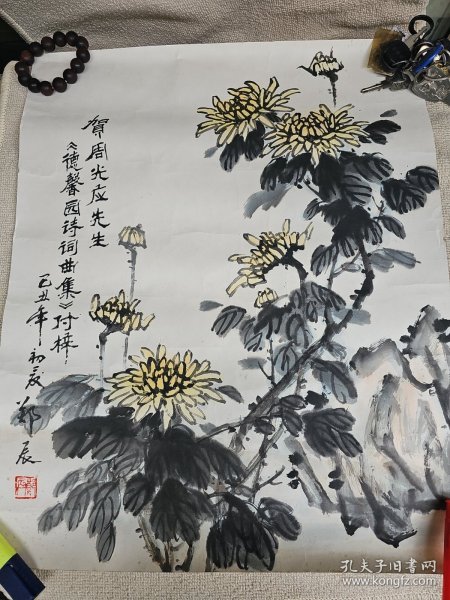 贺周光应先生
《德馨园诗词曲集》付梓
己丑年初夏 郑辰
孔夫子旧书网
www.kongfz.com